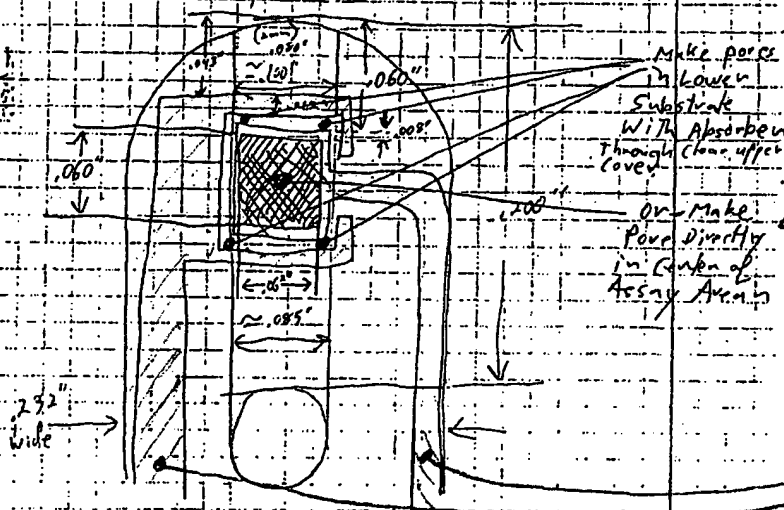 (2mm)
.080"
.043"
≈
.100"
.060"
.008"
.060"
.200"
.062"
≈ .085"
.232"
wide
Make pores
in Lower
Substrate
With Absorber
Through clear upper
cover
Or-Make
Pore Directly
in Center of
Assay Area